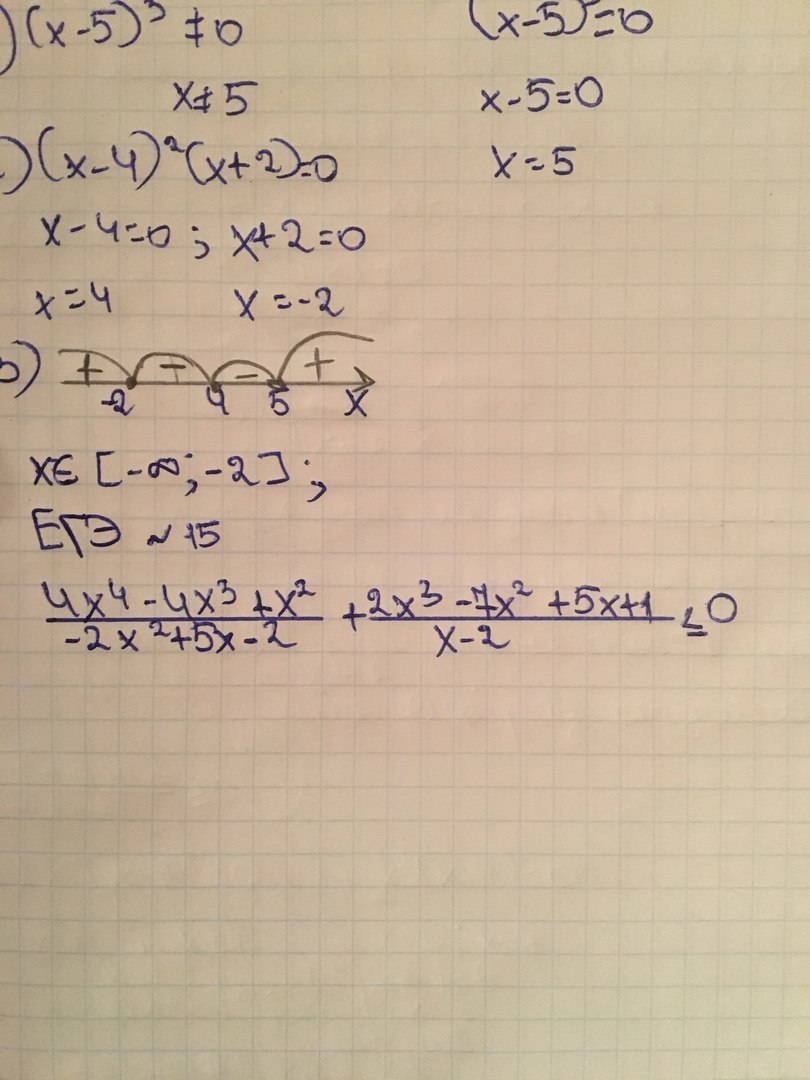 ) (x-5)³ ≠ 0    (x-5)³=0
x≠5    x-5=0
.) (x-4)²(x+2)=0    x=5
x-4=0 ; x+2=0
x=4    x=-2
) + - - +
-2 4 5 x
x∈ [-∞;-2] ;
ЕГЭ ~15
(4x⁴-4x³+x²)/(-2x²+5x-2) + (2x³-7x²+5x+1)/(x-2) ≤0